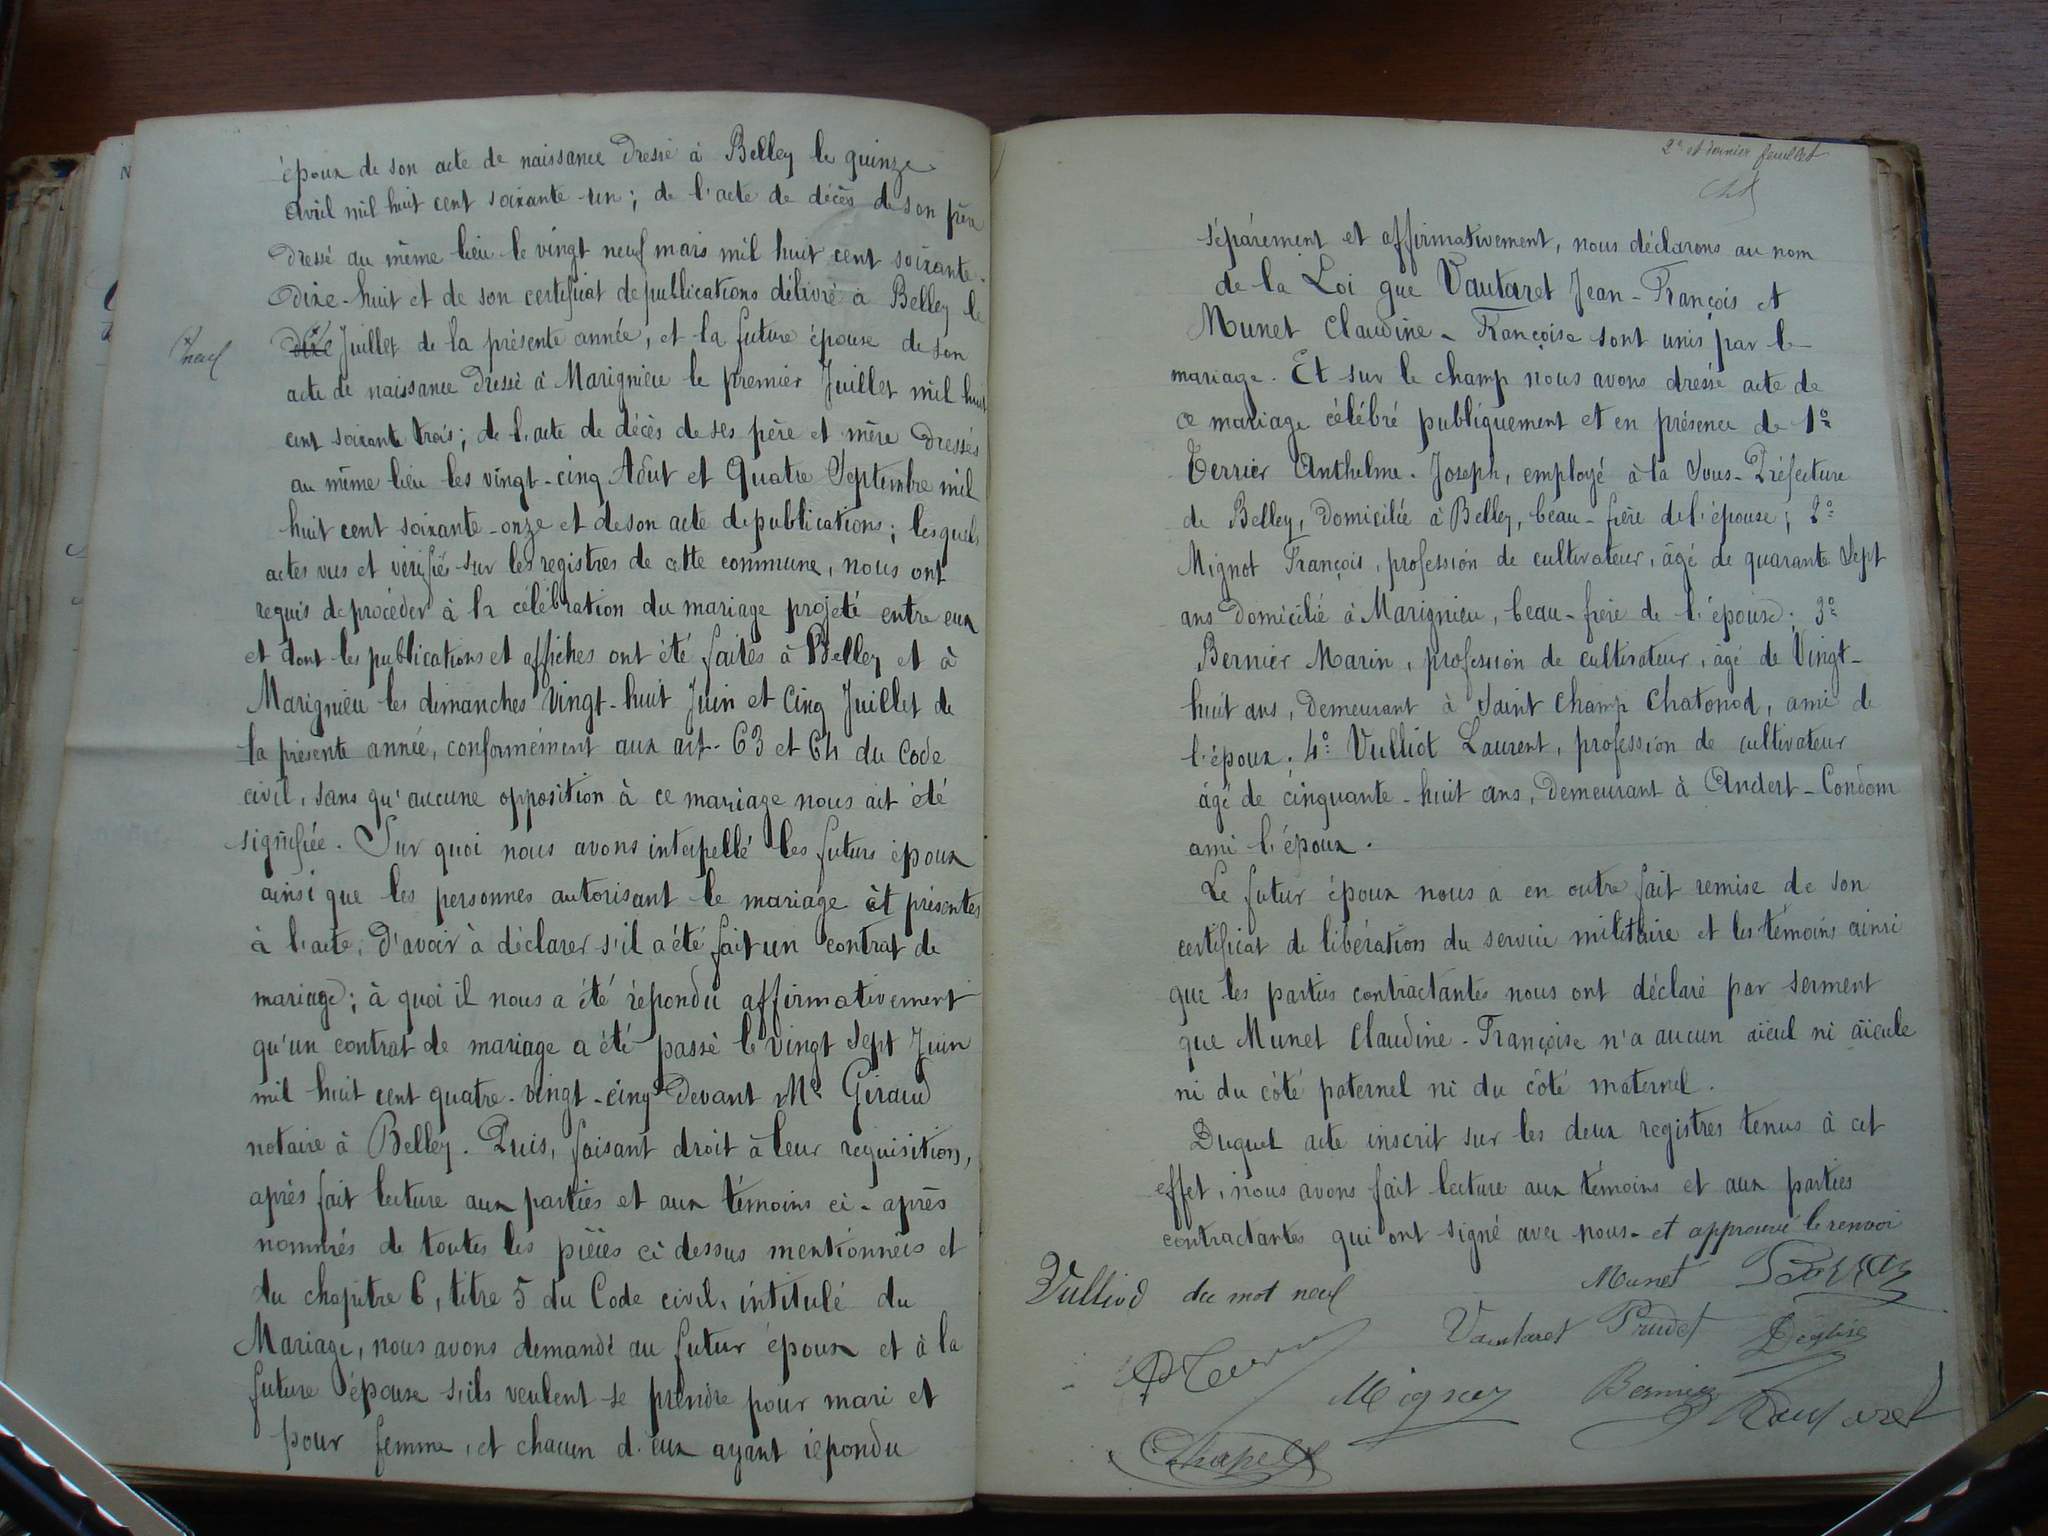 époux de son acte de naissance dressé à Belley le quinze
Avril mil huit cent soixante-un; de l'acte de décès de son père
dressé au même lieu le vingt neuf mars mil huit cent soixante-
dixe-huit et de son certificat de publications délivré à Belley le
neuf
dixe Juillet de la présente année, et la future épouse de son
acte de naissance dressé à Marignieu le premier Juillet mil huit
cent soixante trois; de l'acte de décès de ses père et mère dressés
au même lieu les vingt-cinq Aout et Quatre Septembre mil
huit cent soixante-onze et de son acte de publications; lesquels
actes vus et vérifiés sur les registres de cette commune, nous ont
requis de procéder à la célébration du mariage projeté entre eux
et dont les publications et affiches ont été faites à Belley et à
Marignieu les dimanches vingt-huit Juin et Cinq Juillet de
la présente année, conformément aux art. 63 et 64 du Code
civil, sans qu'aucune opposition à ce mariage nous ait été
signifiée. Sur quoi nous avons interpellé les futurs époux
ainsi que les personnes autorisant le mariage et présentes
à l'acte, d'avoir à déclarer s'il a été fait un contrat de
mariage; à quoi il nous a été répondu affirmativement
qu'un contrat de mariage a été passé le vingt sept Juin
mil huit cent quatre-vingt-cinq devant Me Giraud
notaire à Belley. Puis, faisant droit à leur requisition,
après fait lecture aux parties et aux témoins ci-après
nommés de toutes les pièces ci dessus mentionnées et
du chapitre 6, titre 5 du Code civil, intitulé du
Mariage, nous avons demandé au futur époux et à la
future épouse s'ils veulent se prendre pour mari et
pour femme, et chacun d'eux ayant répondu
2e et dernier feuillet
séparement et affirmativement, nous déclarons au nom
de la Loi que Vautaret Jean-François et
Munet Claudine-Françoise sont unis par le
mariage. Et sur le champ nous avons dressé acte de
ce mariage célébré publiquement et en présence de 1º
Terrier Anthelme-Joseph, employé à la Sous-Préfecture
de Belley, domiciliée à Belley, beau-frère de l'épouse; 2º
Mignot François, profession de cultivateur, âgé de quarante sept
ans domicilié à Marignieu, beau-frère de l'épouse; 3º
Bernier Marin, profession de cultivateur, âgé de Vingt-
huit ans, demeurant à Saint Champ Chatonod, ami de
l'époux. 4º Vulliot Laurent, profession de cultivateur
âgé de cinquante-huit ans, demeurant à Andert-Condom
ami l'époux.
Le futur époux nous a en outre fait remise de son
certificat de libération du service militaire et les témoins ainsi
que les parties contractantes nous ont déclaré par serment
que Munet Claudine-Françoise n'a aucun aïeul ni aïeule
ni du côté paternel ni du côté maternel.
Duquel acte inscrit sur les deux registres tenus à cet
effet, nous avons fait lecture aux témoins et aux parties
contractantes qui ont signé avec nous - et approuvé le renvoi
Vulliod du mot neuf Munet
Vautaret Prudet Déglise
Mignot Bernier Vautaret
Chapel